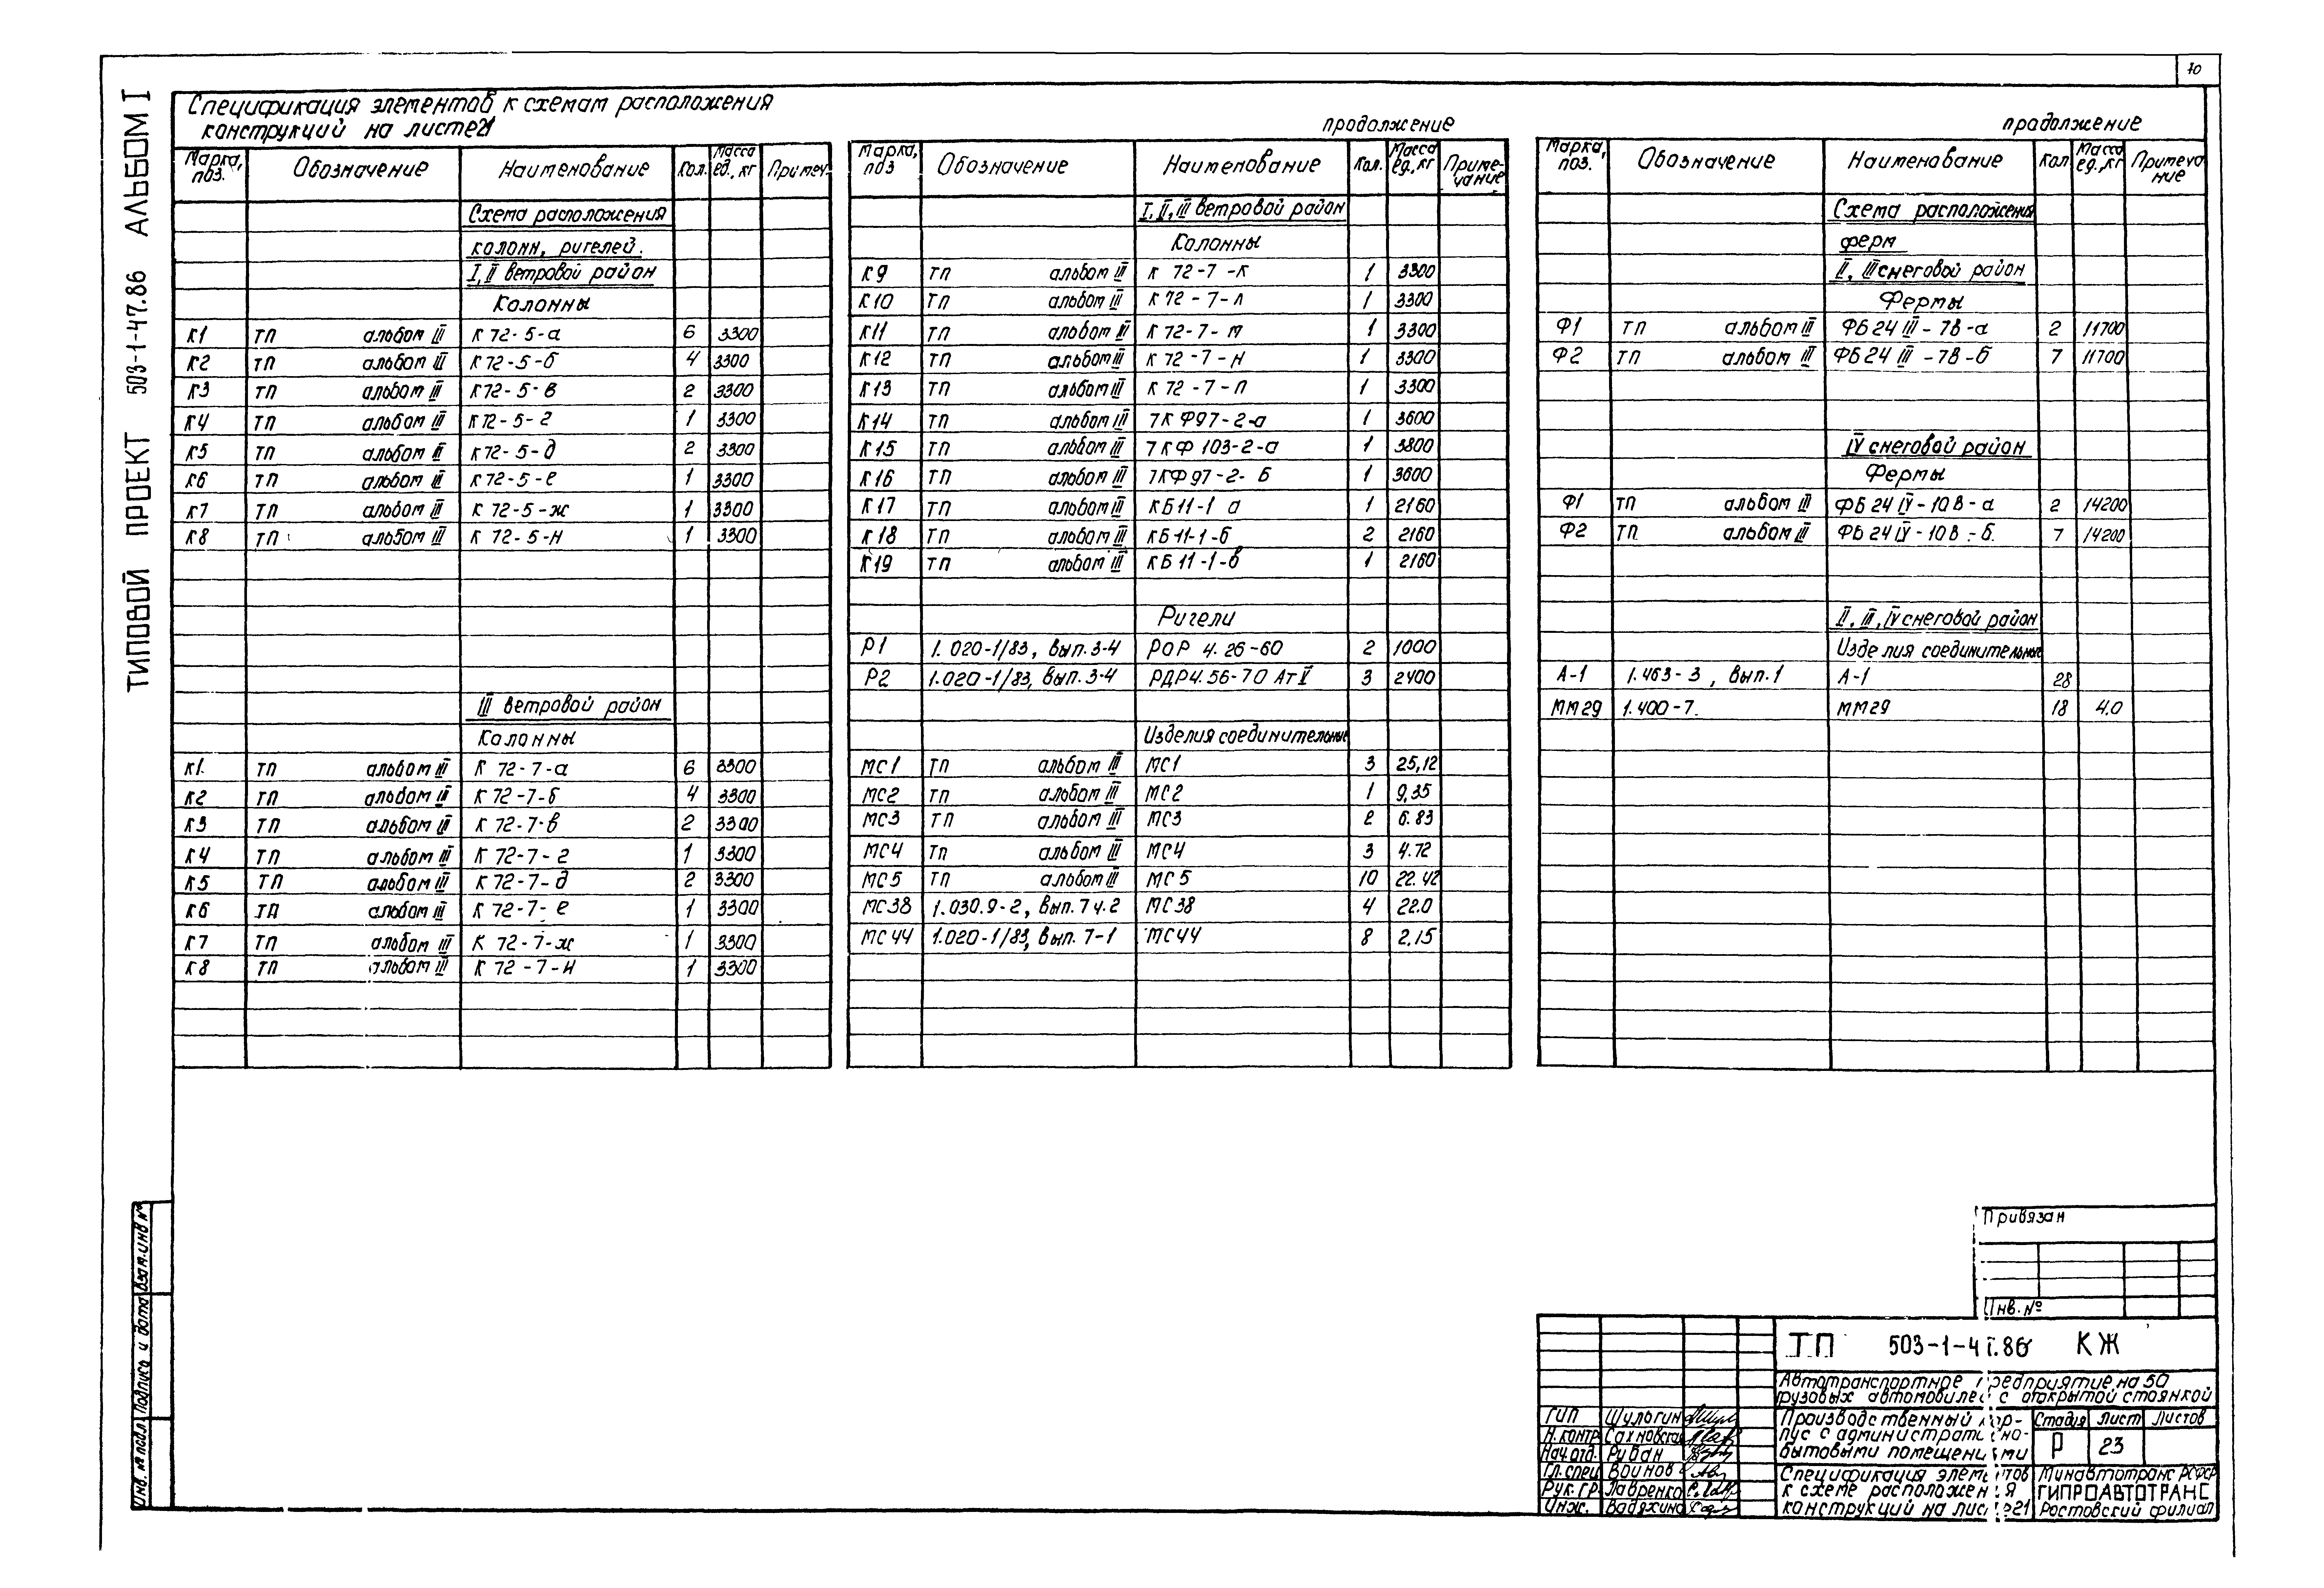 70
ТИПОВОЙ ПРОЕКТ 503-1-47.86 АЛЬБОМ I
Спецификация элементов к схемам расположения
конструкций на листе 21
Марка, поз. Обозначение Наименование Кол. Масса ед., кг Примеч.
Схема расположения
колонн, ригелей.
I, II ветровой район
Колонны
К1 ТП альбом III К 72-5-а 6 3300
К2 ТП альбом III К 72-5-б 4 3300
К3 ТП альбом III К 72-5-в 2 3300
К4 ТП альбом III К 72-5-г 1 3300
К5 ТП альбом III К 72-5-д 2 3300
К6 ТП альбом III К 72-5-е 1 3300
К7 ТП альбом III К 72-5-ж 1 3300
К8 ТП альбом III К 72-5-и 1 3300
III ветровой район
Колонны
К1 ТП альбом III К 72-7-а 6 3300
К2 ТП альбом III К 72-7-б 4 3300
К3 ТП альбом III К 72-7-в 2 3300
К4 ТП альбом III К 72-7-г 1 3300
К5 ТП альбом III К 72-7-д 2 3300
К6 ТП альбом III К 72-7-е 1 3300
К7 ТП альбом III К 72-7-ж 1 3300
К8 ТП альбом III К 72-7-и 1 3300
продолжение
Марка, поз Обозначение Наименование Кол. Масса ед., кг Примечание
I, II, III ветровой район
Колонны
К9 ТП альбом III К 72-7-к 1 3300
К10 ТП альбом III К 72-7-л 1 3300
К11 ТП альбом III К 72-7-м 1 3300
К12 ТП альбом III К 72-7-н 1 3300
К13 ТП альбом III К 72-7-п 1 3300
К14 ТП альбом III 7КФ97-2-а 1 3600
К15 ТП альбом III 7КФ 103-2-а 1 3800
К16 ТП альбом III 7КФ97-2-Б 1 3600
К17 ТП альбом III КБ11-1 а 1 2160
К18 ТП альбом III КБ11-1-б 2 2160
К19 ТП альбом III КБ11-1-в 1 2160
Ригели
Р1 1.020-1/83, вып. 3-4 РОР 4.26-60 2 1000
Р2 1.020-1/83, вып. 3-4 РДР4.56-70 АтV 3 2400
Изделия соединительные
МС1 ТП альбом III МС1 3 25,12
МС2 ТП альбом III МС2 1 9,35
МС3 ТП альбом III МС3 2 6.83
МС4 ТП альбом III МС4 3 4.72
МС5 ТП альбом III МС5 10 22.42
МС38 1.030.9-2, вып. 7 ч. 2 МС38 4 22.0
МС44 1.020-1/83, вып. 7-1 МС44 8 2.15
продолжение
Марка, поз. Обозначение Наименование Кол Масса ед., кг Примечание
Схема расположения
ферм
II, III снеговой район
Фермы
Ф1 ТП альбом III ФБ24 III-7В-а 2 11700
Ф2 ТП альбом III ФБ24 III-7В-б 7 11700
IV снеговой район
Фермы
Ф1 ТП альбом III ФБ24 IV-10В-а 2 14200
Ф2 ТП альбом III ФБ24 IV-10В-б. 7 14200
II, III, IV снеговой район
Изделия соединительные
А-1 1.463-3, вып. 1 А-1 28
ММ29 1.400-7. ММ29 18 4.0
Привязан
Инв. №
ТП 503-1-47.86 КЖ
Автотранспортное предприятие на 50
грузовых автомобилей с открытой стоянкой
Производственный кор-
пус с административно-
бытовыми помещениями
Стадия Лист Листов
Р 23
Спецификация элементов
к схеме расположения
конструкций на листе 21
Минавтотранс РСФСР
ГИПРОАВТОТРАНС
Ростовский филиал
ГИП Шулогин
Н.контр Сахновская
Нач.отд. Рубан
Гл.спец Воинов
Рук.гр. Лавренко
Инж. Вадяхина
Инв. № подл. Подпись и дата Взам.инв №